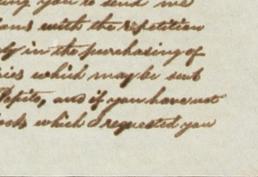 you to send me
ions with the repetition
ly in the purchasing of
ries which may be sent
Pepito, and if you have not
ook which I requested you